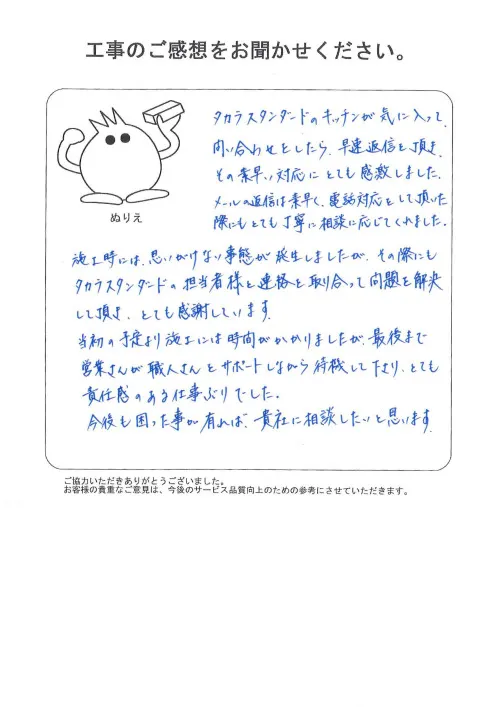 工事のご感想をお聞かせください。
タカラスタンダードのキッチンが気に入って、
問い合わせをしたら、早速返信を頂き、
その素早い対応にとても感激しました。
メールの返信は素早く、電話対応をして頂いた
際にもとても丁寧に相談に応じてくれました。
ぬりえ
施工時には、思いがけない事態が発生しましたが、その際にも
タカラスタンダードの担当者様と連絡を取り合って問題を解決
して頂き、とても感謝しています。
当初の予定より施工には時間がかかりましたが、最後まで
営業さんが職人さんをサポートしながら待機して下さり、とても
責任感のある仕事ぶりでした。
今後も困った事が有れば、貴社に相談したいと思います。
ご協力いただきありがとうございました。
お客様の貴重なご意見は、今後のサービス品質向上のための参考にさせていただきます。